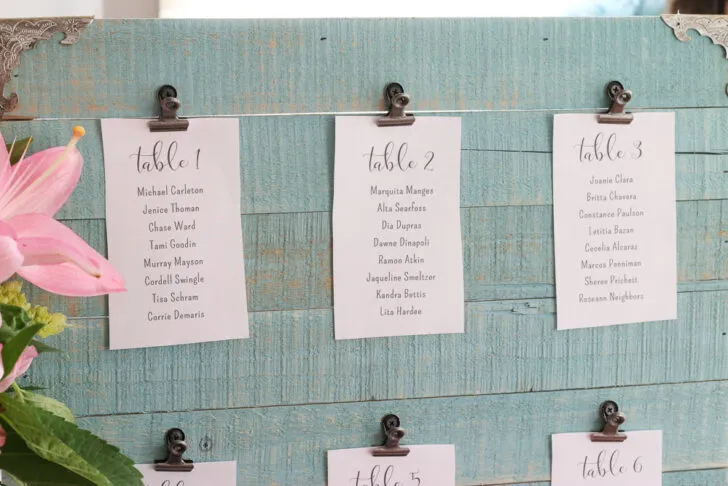 table 1
Michael Carleton
Jenice Thoman
Chase Ward
Tami Goodin
Murray Mayson
Cordell Swingle
Tisa Schram
Corrie Demaris
table 2
Marquita Manges
Alta Searfoss
Dia Dupras
Dawne Dinapoli
Ramon Atkin
Jaqueline Smeltzer
Kandra Bettis
Lita Hardee
table 3
Joanie Clara
Britta Chavera
Constance Paulson
Letitia Bazan
Cecelia Alcaraz
Marcos Penniman
Sheree Prichett
Roseann Neighbors
table 5
table 6